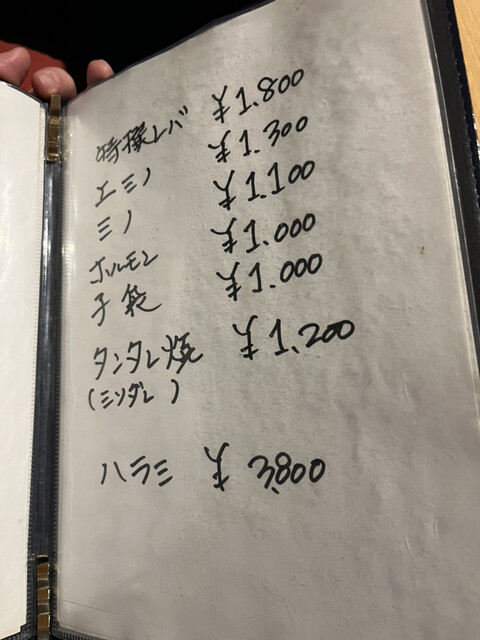 特撰レバ ¥1.800
上ミノ ¥1.300
ミノ ¥1.100
ホルモン ¥1.000
子袋 ¥1.000
タンタレ焼 ¥1.200
(ミソダレ)
ハラミ ¥3.800